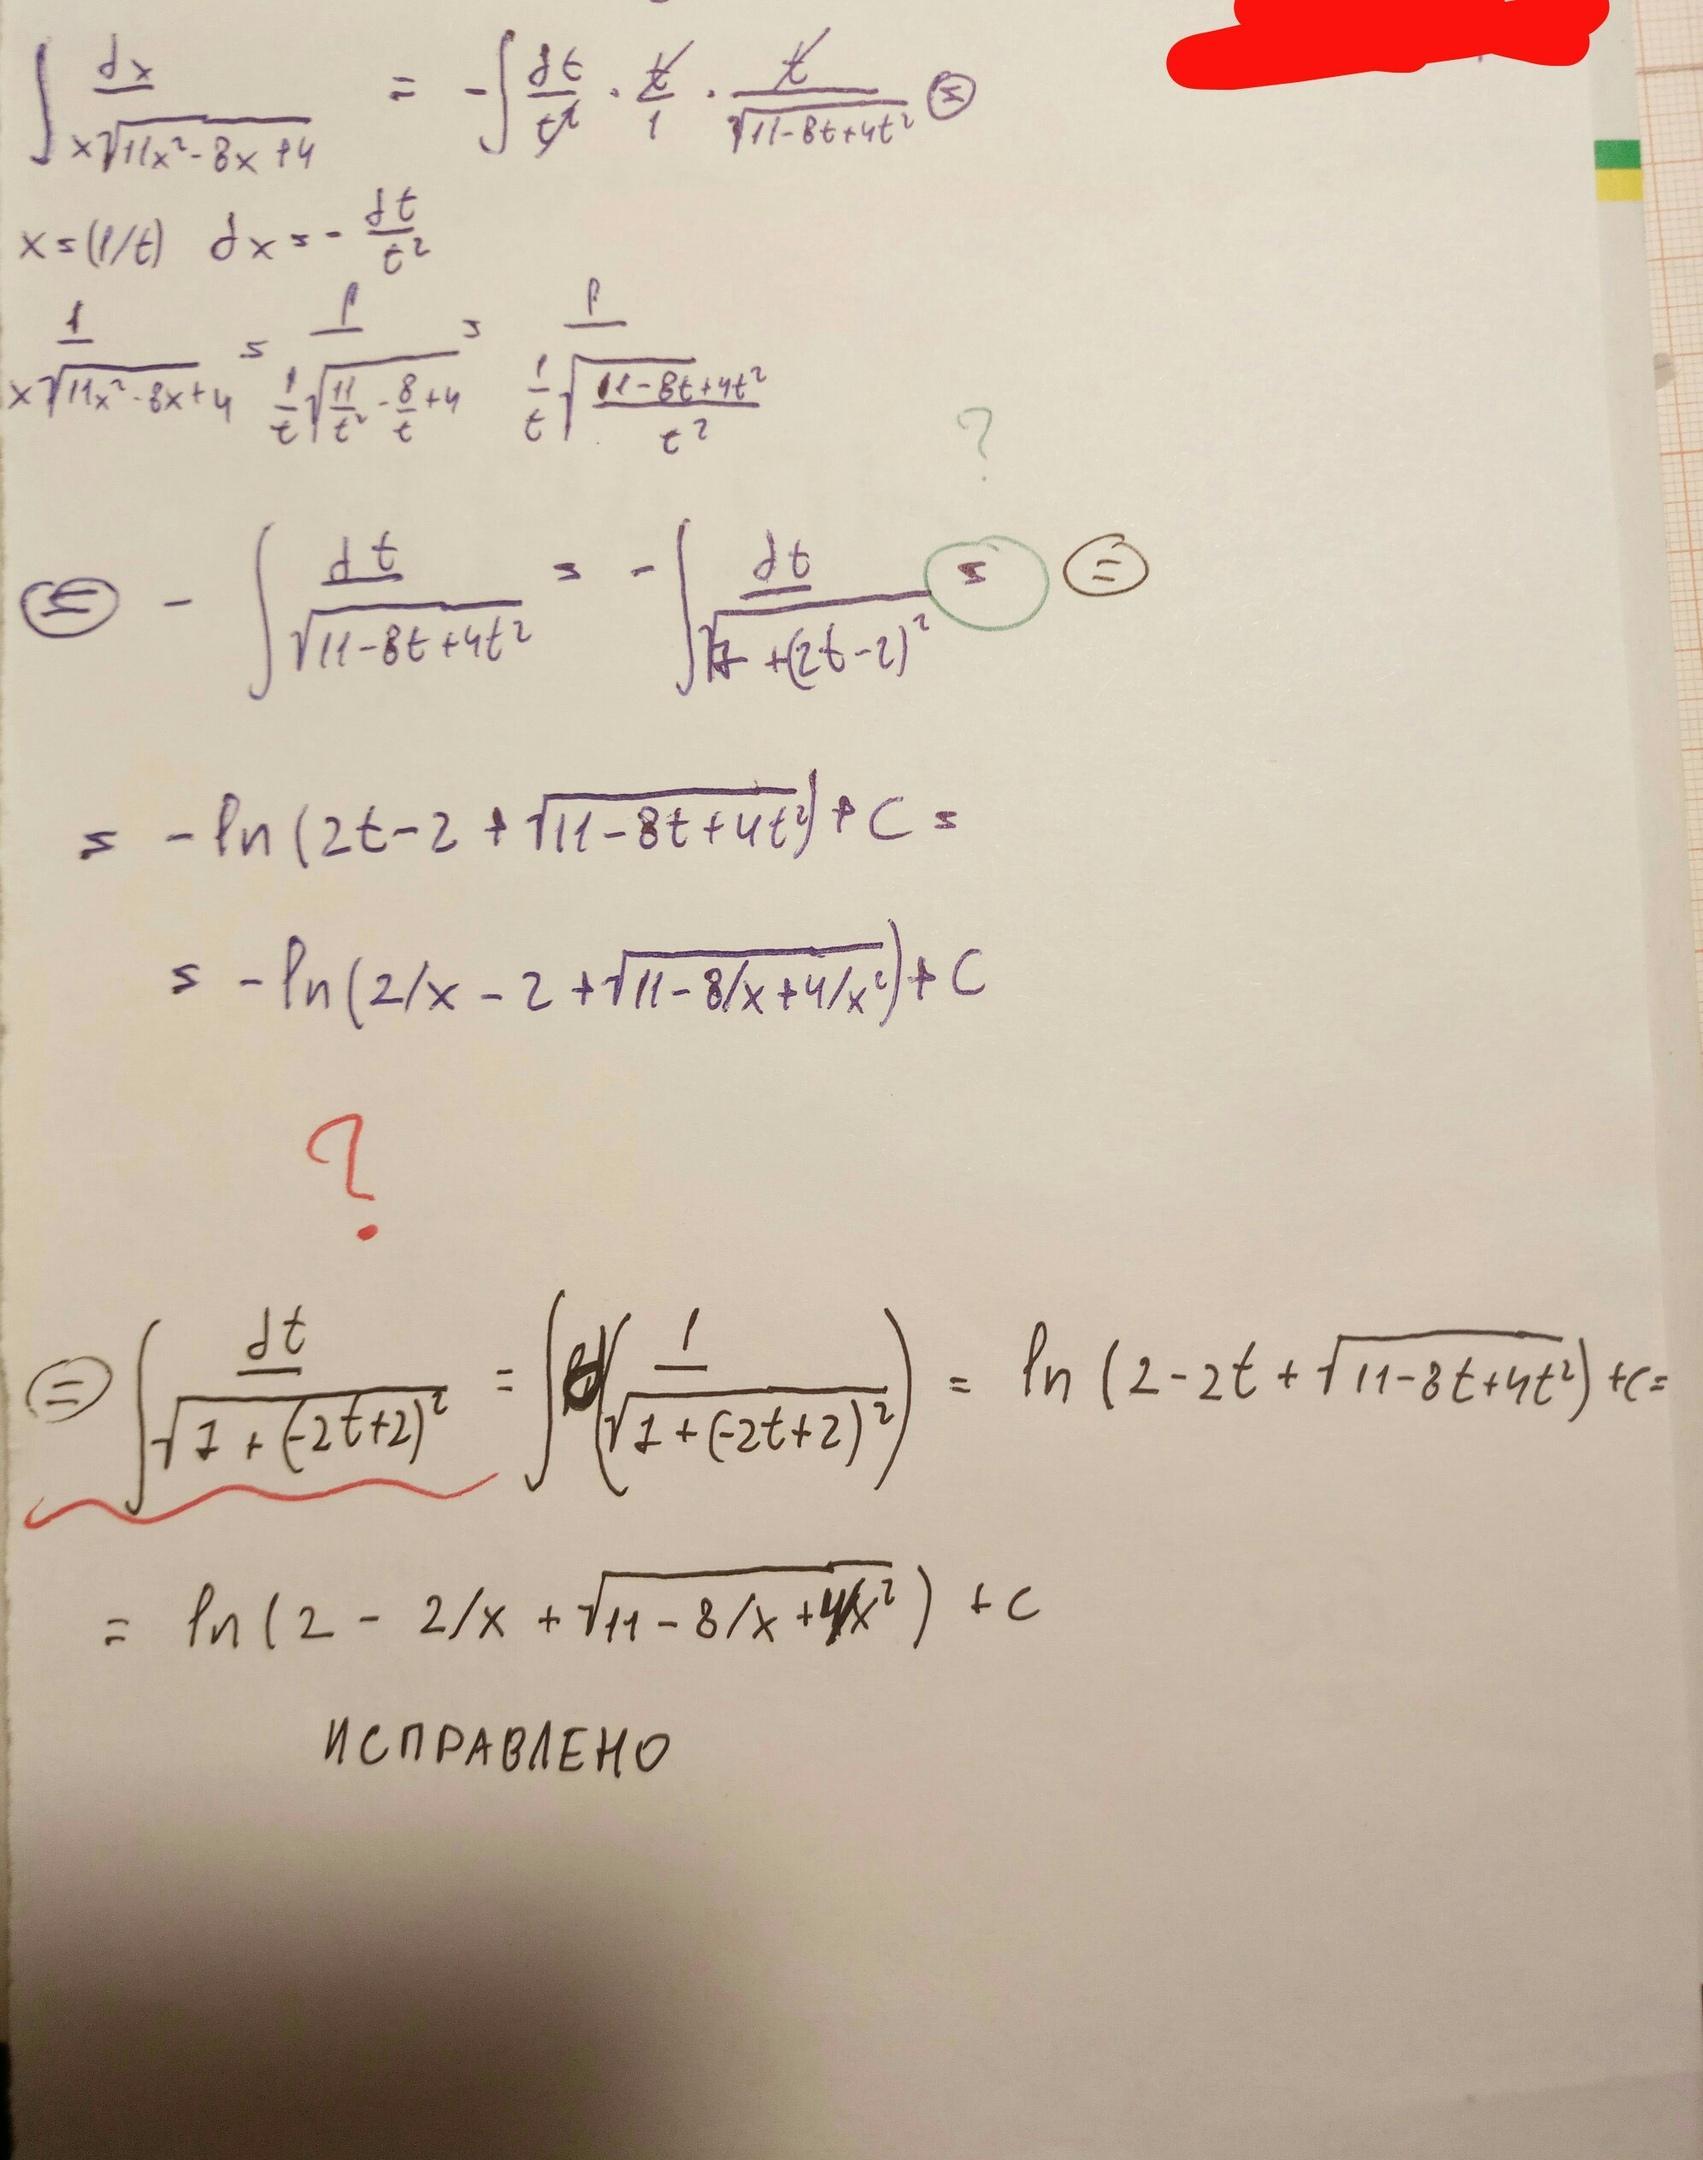 ∫ dx / (x√(11x² - 8x + 4)) = -∫ dt/t² · t/1 · t/√(11-8t+4t²) =
x = (1/t) dx = - dt/t²
1/(x√(11x²-8x+4)) = 1/((1/t)√(11/t² - 8/t + 4)) = 1/((1/t)√((11-8t+4t²)/t²))
?
= - ∫ dt/√(11-8t+4t²) = - ∫ dt/√(7+(2t-2)²) = =
= -ln(2t-2+√(11-8t+4t²))+C =
= -ln(2/x - 2 + √(11-8/x+4/x²))+C
?
= ∫ dt/√(7+(-2t+2)²) = ∫ (1/√(7+(-2t+2)²)) = ln(2-2t+√(11-8t+4t²))+C=
= ln(2 - 2/x + √(11-8/x+4/x²)) +C
ИСПРАВЛЕНО